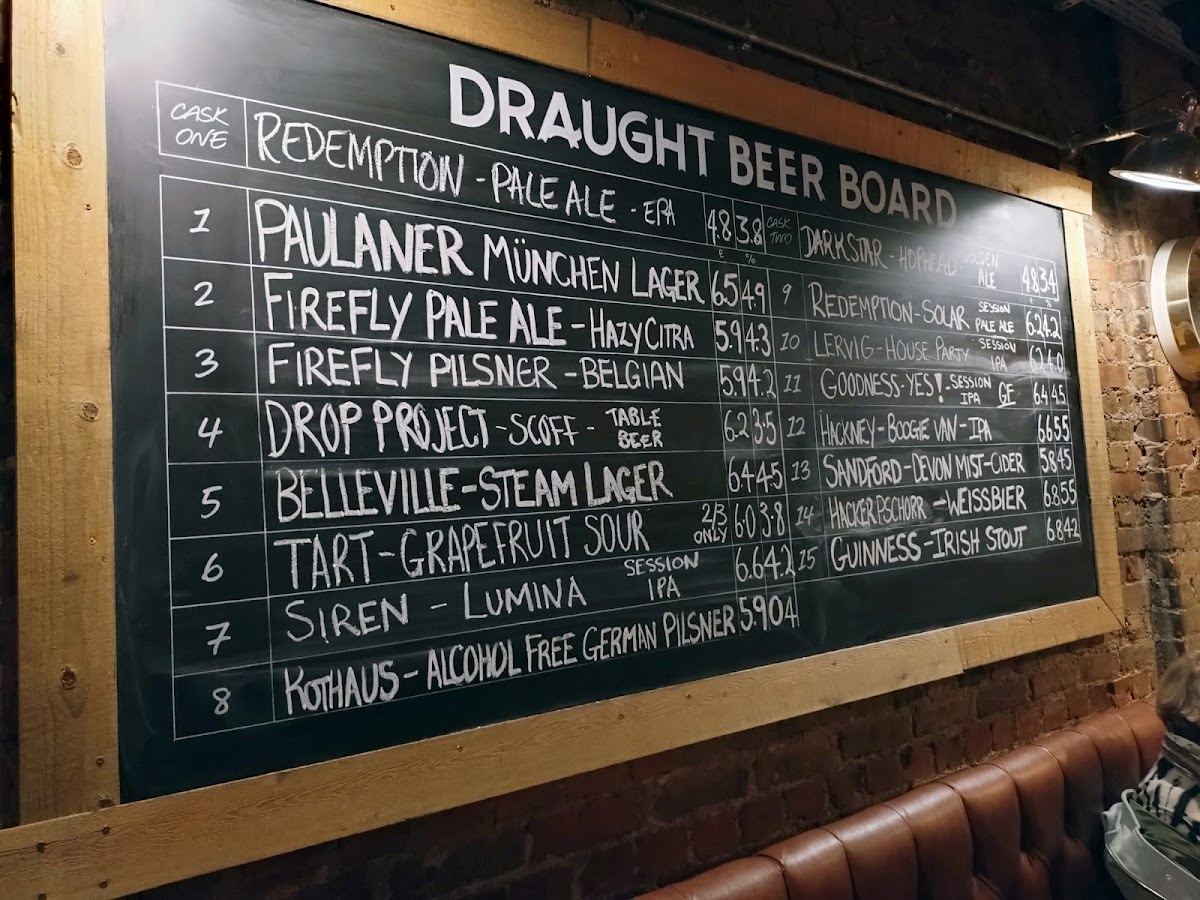 DRAUGHT BEER BOARD
CASK ONE REDEMPTION - PALE ALE - EPA 4.8 3.8
£ %
1 PAULANER MÜNCHEN LAGER 6.5 4.9
2 FIREFLY PALE ALE - HAZY CITRA 5.9 4.3
3 FIREFLY PILSNER - BELGIAN 5.9 4.2
4 DROP PROJECT - SCOFF - TABLE BEER 6.2 3.5
5 BELLEVILLE - STEAM LAGER 6.4 4.5
6 TART - GRAPEFRUIT SOUR 2/3 ONLY 6.0 3.8
7 SIREN - LUMINA SESSION IPA 6.6 4.2
8 KOTHAUS - ALCOHOL FREE GERMAN PILSNER 5.9 0.4
CASK TWO DARK STAR - HOPHEAD - GOLDEN ALE 4.8 3.4
£ %
9 REDEMPTION - SOLAR SESSION PALE ALE 6.2 4.2
10 LERVIG - HOUSE PARTY SESSION IPA 6.2 4.0
11 GOODNESS - YES! - SESSION IPA GF 6.4 4.5
12 HACKNEY - BOOGIE VAN - IPA 6.6 5.5
13 SANDFORD - DEVON MIST - CIDER 5.8 4.5
14 HACKER PSCHORR - WEISSBIER 6.8 5.5
15 GUINNESS - IRISH STOUT 6.8 4.2